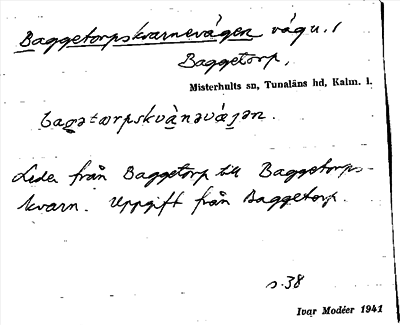 Baggetorpskvarnevägen vägn. /
Baggetorp,
Misterhults sn, Tunaläns hd, Kalm. l.
bagətωrpskvànəvä́jən.
Leder från Baggetorp till Baggetorps-
kvarn. Uppgift från Baggetorp.
s. 38
Ivar Modéer 1941